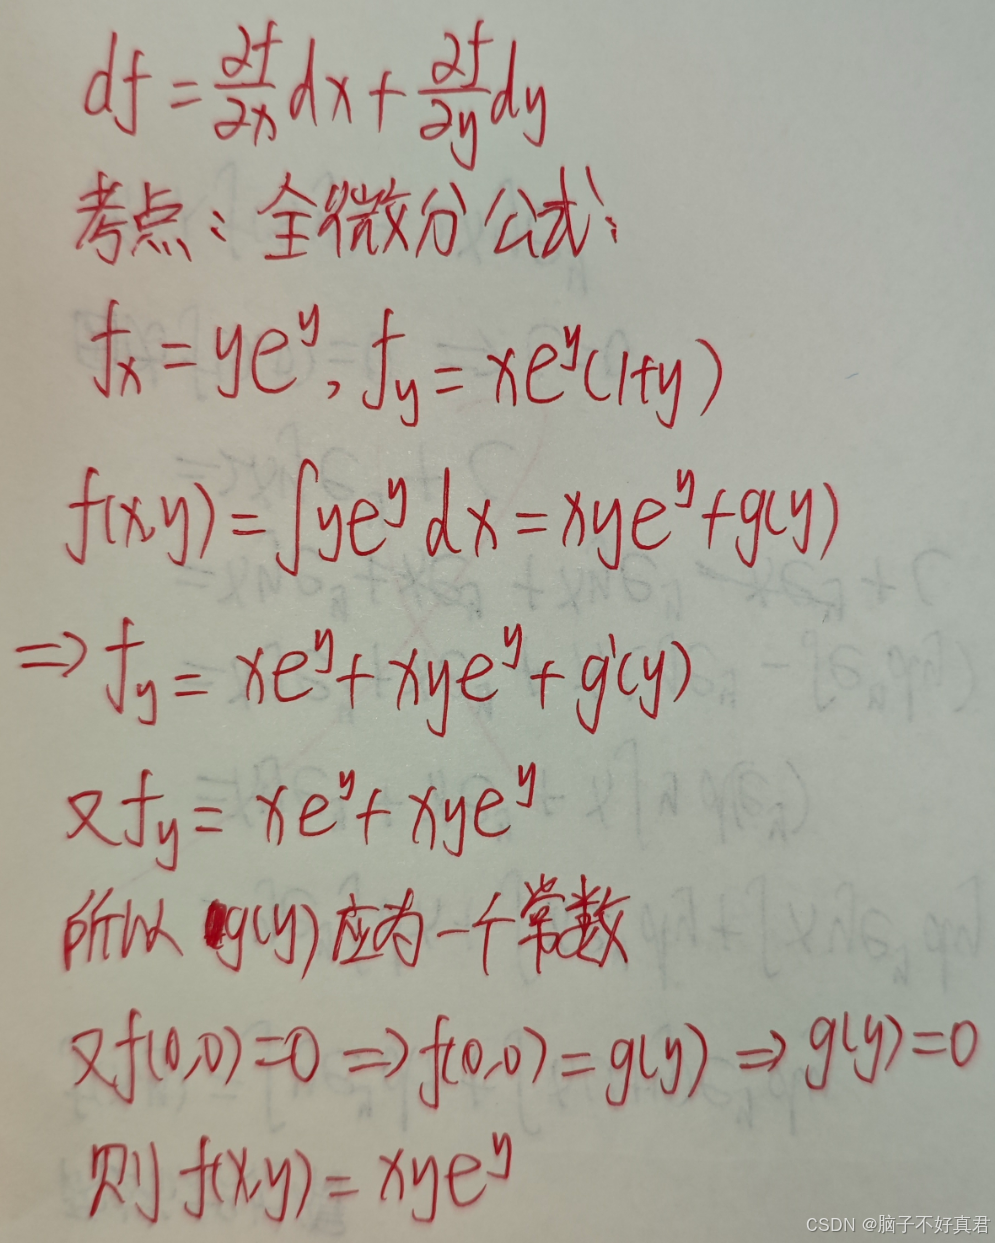 df = ∂f/∂x dx + ∂f/∂y dy
考点：全微分公式；
fx = ye^y, fy = xe^y(1+y)
f(x,y) = ∫ye^y dx = xye^y + g(y)
⇒ fy = xe^y + xye^y + g'(y)
又fy = xe^y + xye^y
所以 g(y)应为一个常数
又f(0,0)=0 ⇒ f(0,0) = g(y) ⇒ g(y)=0
则 f(x,y) = xye^y
CSDN @脑子不好真君